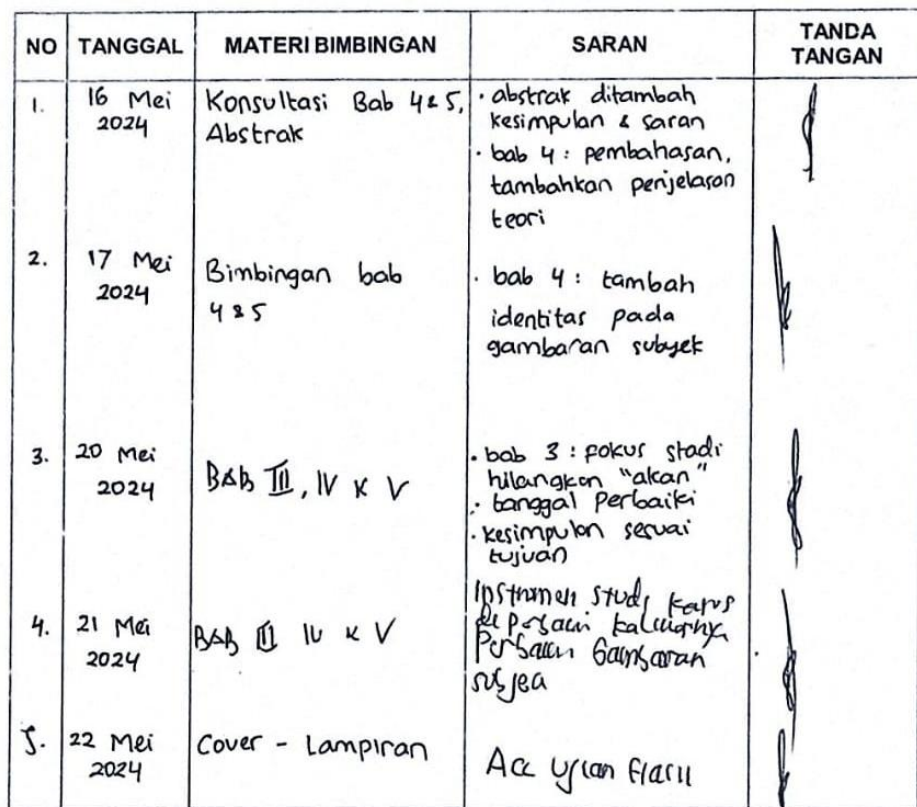 NO TANGGAL MATERI BIMBINGAN SARAN TANDA TANGAN
1. 16 Mei 2024
Konsultasi Bab 4 & 5,
Abstrak
· abstrak ditambah
kesimpulan & saran
· bab 4 : pembahasan,
tambahkan penjelasan
teori
2. 17 Mei 2024
Bimbingan bab
4 & 5
· bab 4 : tambah
identitas pada
gambaran subyek
3. 20 Mei 2024
BAB III, IV & V
· bab 3 : fokus studi
hilangkan "akan"
· tanggal perbaiki
· kesimpulan sesuai
tujuan
4. 21 Mei 2024
BAB III IV & V
Instrumen studi kasus
di perbaiki kalimatnya
Perbaiki Gambaran
5. 22 Mei 2024
Cover - Lampiran
Acc Ujian